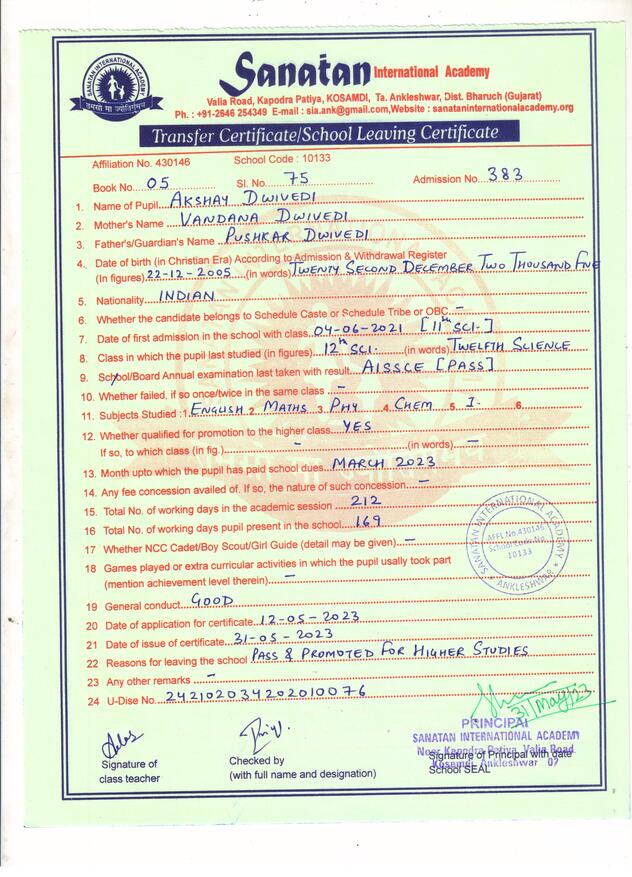 SANATAN INTERNATIONAL ACADEMY
तमसो मा ज्योतिर्गमय
Sanatan International Academy
Valia Road, Kapodra Patiya, KOSAMDI, Ta. Ankleshwar, Dist. Bharuch (Gujarat)
Ph. : +91-2646 254349 E-mail : sia.ank@gmail.com,Website : sanataninternationalacademy.org
Transfer Certificate/School Leaving Certificate
Affiliation No. 430146 School Code : 10133
Book No. 05 Sl. No. 75 Admission No. 383
1. Name of Pupil AKSHAY DWIVEDI
2. Mother's Name VANDANA DWIVEDI
3. Father's/Guardian's Name PUSHKAR DWIVEDI
4. Date of birth (in Christian Era) According to Admission & Withdrawal Register
(In figures) 22-12-2005 (in words) TWENTY SECOND DECEMBER TWO THOUSAND FIVE
5. Nationality INDIAN
6. Whether the candidate belongs to Schedule Caste or Schedule Tribe or OBC. -
7. Date of first admission in the school with class 04-06-2021 [11th SCI.]
8. Class in which the pupil last studied (in figures) 12th SCI. (in words) TWELFTH SCIENCE
9. School/Board Annual examination last taken with result AISSCE [PASS]
10. Whether failed, if so once/twice in the same class -
11. Subjects Studied :1. ENGLISH 2. MATHS 3. PHY 4. CHEM 5. I. 6.
12. Whether qualified for promotion to the higher class YES
If so, to which class (in fig.) - (in words) -
13. Month upto which the pupil has paid school dues MARCH 2023
14. Any fee concession availed of. If so, the nature of such concession -
15. Total No. of working days in the academic session 212
16 Total No. of working days pupil present in the school 169
17 Whether NCC Cadet/Boy Scout/Girl Guide (detail may be given) -
18 Games played or extra curricular activities in which the pupil usally took part
(mention achievement level therein) -
SANATAN INTERNATIONAL ACADEMY
AFFL No.430146
School Code No.
10133
* ANKLESHWAR *
19 General conduct GOOD
20 Date of application for certificate 12-05-2023
21 Date of issue of certificate 31-05-2023
22 Reasons for leaving the school PASS & PROMOTED FOR HIGHER STUDIES
23 Any other remarks -
24 U-Dise No. 242102034202010076
31/May/23
PRINCIPAL
SANATAN INTERNATIONAL ACADEMY
Near Kapodra Patiya, Valia Road
Kosamdi, Ankleshwar 02
Signature of class teacher
Checked by
(with full name and designation)
Signature of Principal with date
School SEAL